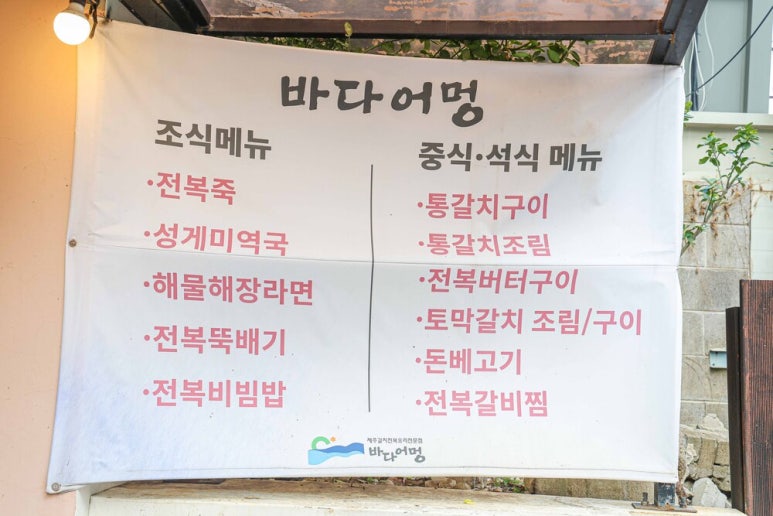 바다어멍
조식메뉴
·전복죽
·성게미역국
·해물해장라면
·전복뚝배기
·전복비빔밥
중식·석식 메뉴
·통갈치구이
·통갈치조림
·전복버터구이
·토막갈치 조림/구이
·돈베고기
·전복갈비찜
바다어멍